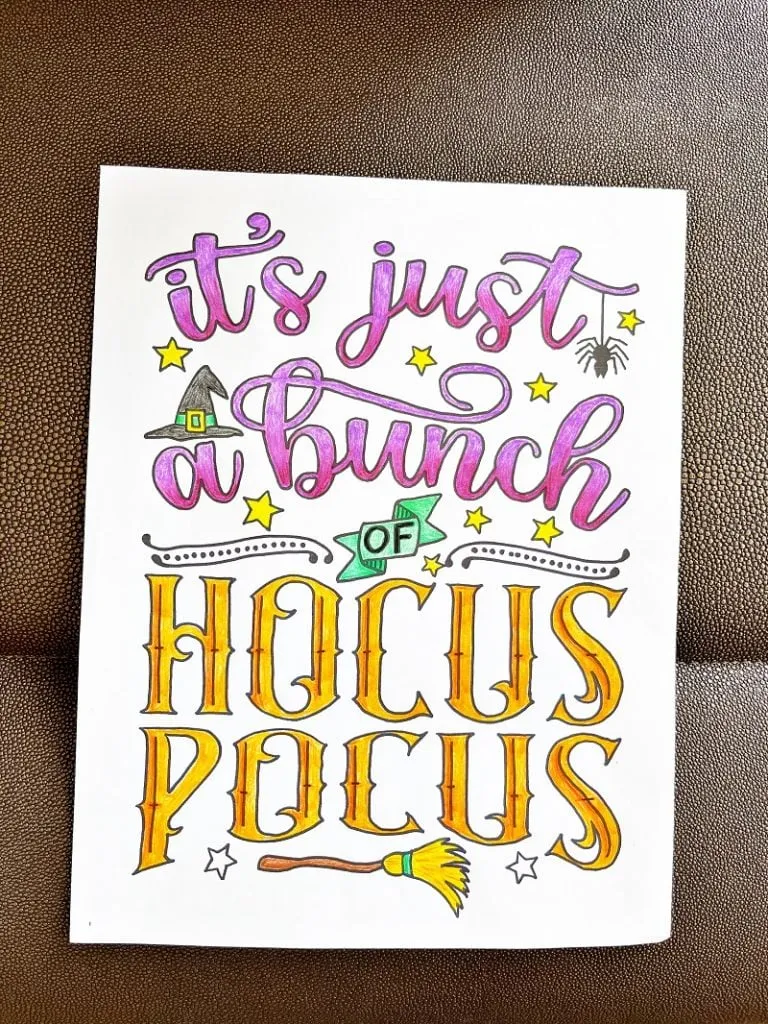 it's just
a bunch
OF
HOCUS
POCUS